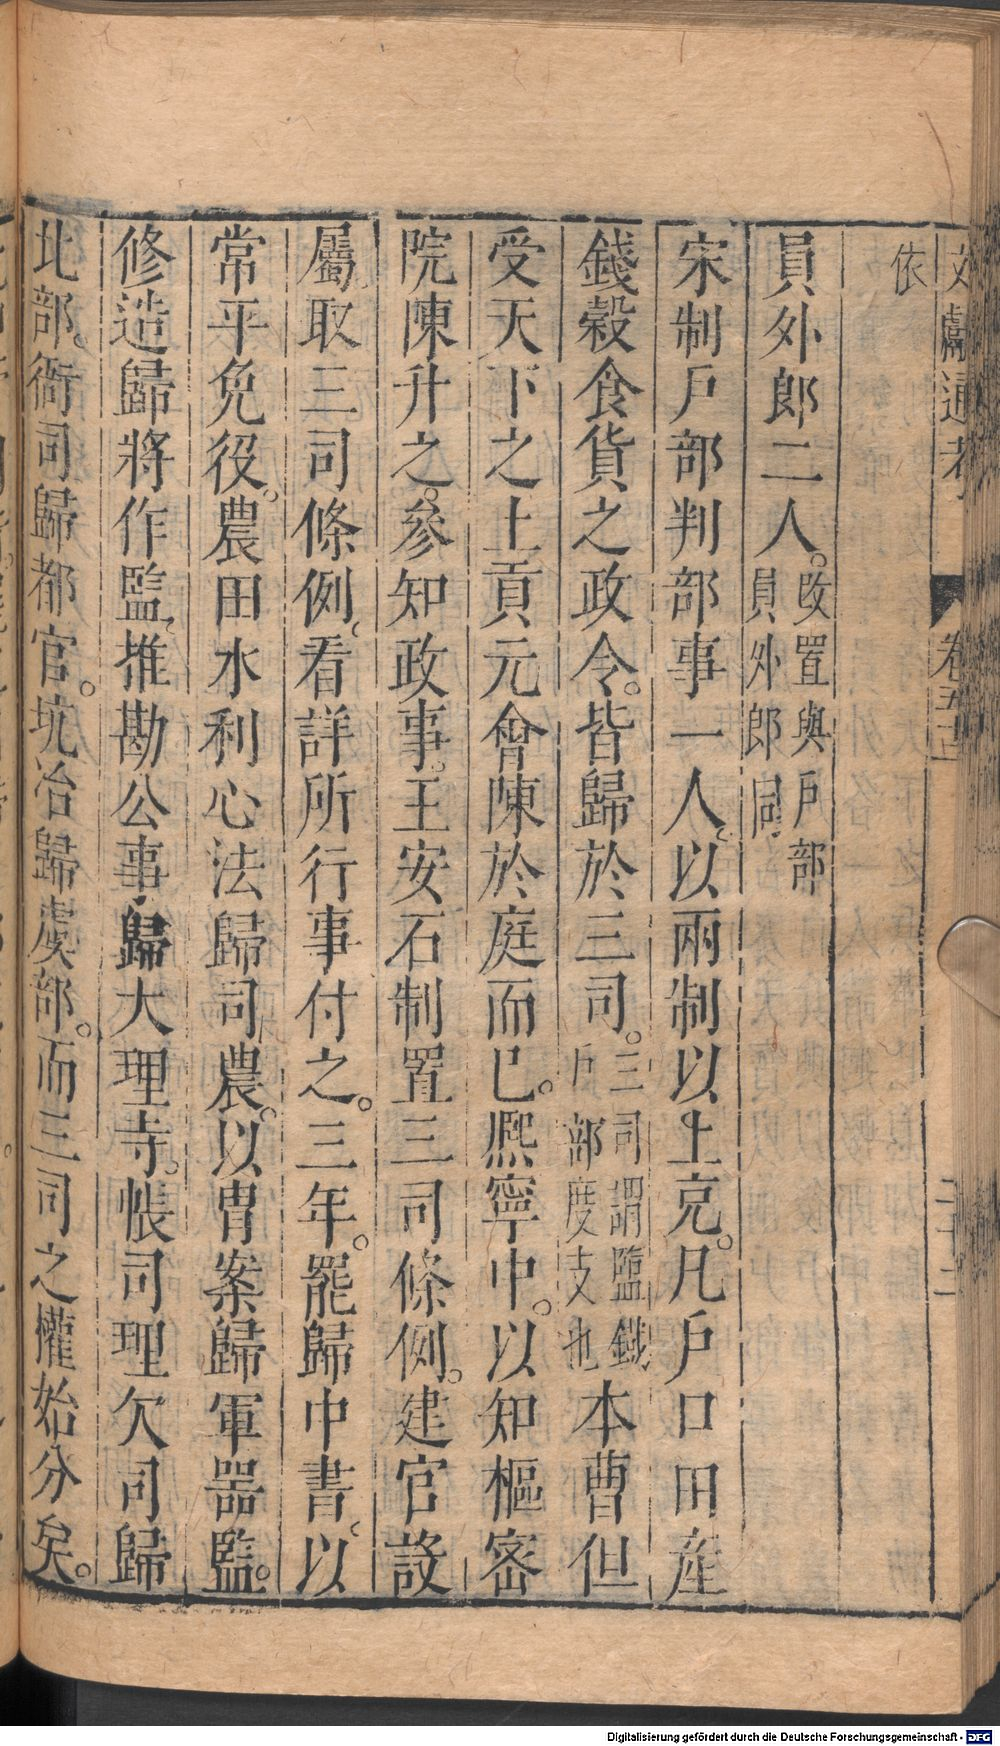 文獻通考 卷五十二 二十二
依
員外郎二人。改置與戶部員外郎同
宋制戶部判部事一人。以兩制以上充。凡戶口田産
錢穀食貨之政令。皆歸於三司。三司謂鹽鐵戶部度支也本曹但
受天下之土貢元會陳於庭而已。熙寧中。以知樞密
院陳升之。參知政事。王安石制置三司條例。建官設
屬。取三司條例。看詳所行事付之。三年。罷歸中書。以
常平免役。農田水利心法歸司農。以胄案歸軍器監。
修造歸將作監。推勘公事歸大理寺。帳司理欠司歸
北部。衙司歸都官。坑冶歸虞部。而三司之權始分矣。
Digitalisierung gefördert durch die Deutsche Forschungsgemeinschaft - DFG